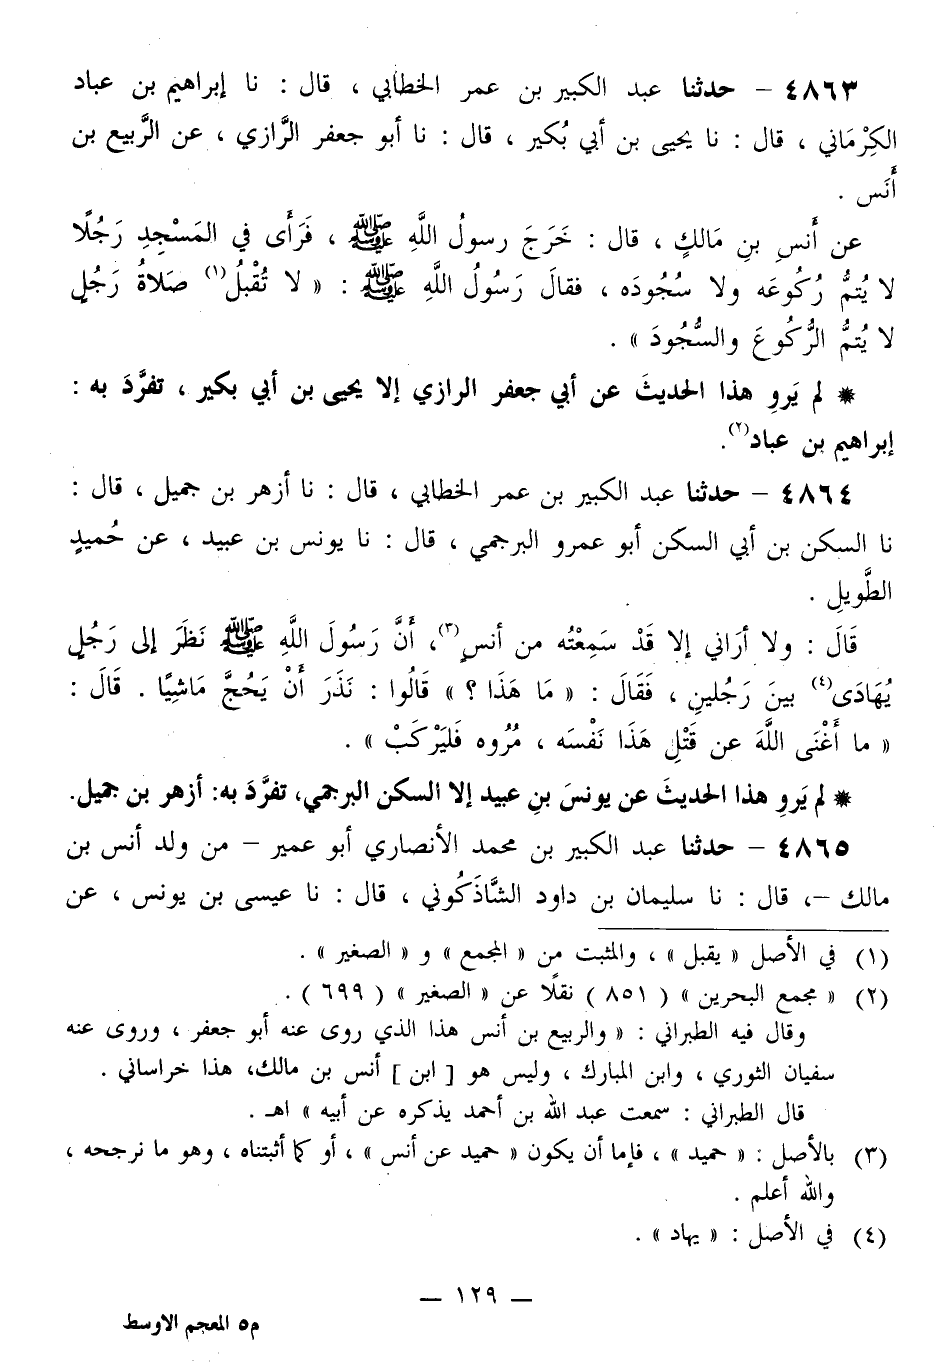 ٤٨٦٣ – حدثنا عبد الكبير بن عمر الخطابي ، قال : نا إبراهيم بن عباد
الكِرْمَاني ، قال : نا يحيى بن أبي بُكير ، قال : نا أبو جعفر الرَّازي ، عن الرَّبيع بن
أَنَس .
عن أَنسِ بنِ مَالكٍ ، قال : خَرَجَ رسولُ اللَّهِ ﷺ ، فَرَأَى في المَسْجِدِ رَجُلًا
لا يُتمُّ رُكُوعَه ولا سُجُودَه ، فقالَ رَسُولُ اللَّهِ ﷺ : « لا تُقْبلُ(١) صَلاةُ رَجُلٍ
لا يُتمُّ الرُّكُوعَ والسُّجُودَ » .
* لم يَروِ هذا الحديثَ عن أبي جعفر الرازي إلا يحيى بن أبي بكير ، تفرَّدَ به :
إبراهيم بن عباد(٢).
٤٨٦٤ – حدثنا عبد الكبير بن عمر الخطابي ، قال : نا أزهر بن جميل ، قال :
نا السكن بن أبي السكن أبو عمرو البرجمي ، قال : نا يونس بن عبيد ، عن حُميدٍ
الطَّويلِ .
قَالَ : ولا أرَاني إلا قَدْ سَمِعْتُه من أنسٍ(٣)، أَنَّ رَسُولَ اللَّهِ ﷺ نَظَرَ إلى رَجُلٍ
يُهَادَى(٤) بينَ رَجُلينِ ، فَقَالَ : « مَا هَذَا ؟ » قَالُوا : نَذَرَ أَنْ يَحُجَّ مَاشِيًا . قَالَ :
« ما أَغْنَى اللَّهَ عن قَتْلِ هَذَا نَفْسَه ، مُرُوه فَليَرْكَبْ » .
* لم يَروِ هذا الحديثَ عن يونسَ بنِ عبيد إلا السكن البرجمي، تفرَّدَ به: أزهر بن جميل.
٤٨٦٥ – حدثنا عبد الكبير بن محمد الأنصاري أبو عمير – من ولد أنس بن
مالك –، قال : نا سليمان بن داود الشَّاذَكُوني ، قال : نا عيسى بن يونس ، عن
(١) في الأصل « يقبل » ، والمثبت من « المجمع » و « الصغير » .
(٢) « مجمع البحرين » ( ٨٥١ ) نقلًا عن « الصغير » ( ٦٩٩ ) .
وقال فيه الطبراني : « والربيع بن أنس هذا الذي روى عنه أبو جعفر ، وروى عنه
سفيان الثوري ، وابن المبارك ، وليس هو [ ابن ] أنس بن مالك، هذا خراساني .
قال الطبراني : سمعت عبد الله بن أحمد يذكره عن أبيه » اهـ .
(٣) بالأصل : « حميد » ، فإما أن يكون « حميد عن أنس » ، أو كما أثبتناه ، وهو ما نرجحه ،
والله أعلم .
(٤) في الأصل : « يهاد » .
– ١٢٩ –
م٥ المعجم الاوسط